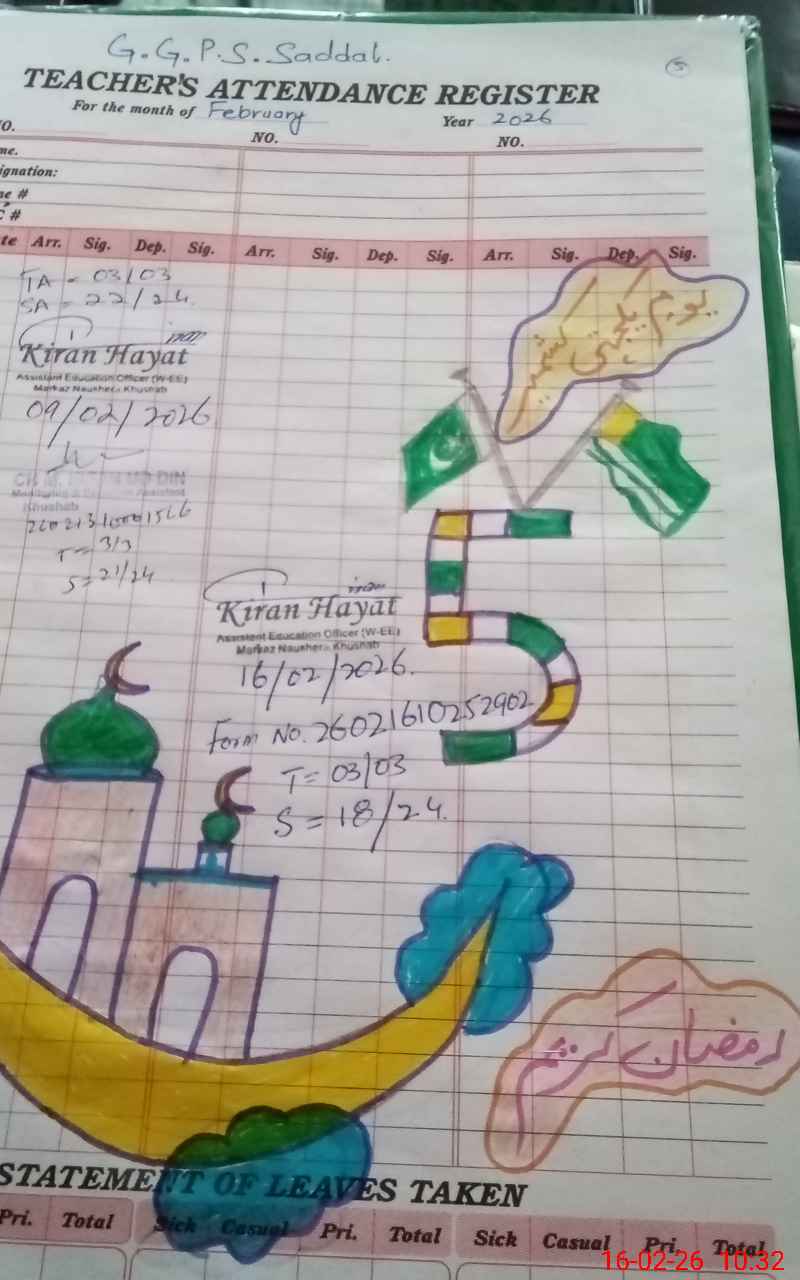 G.G.P.S. Saddal.
5
TEACHER'S ATTENDANCE REGISTER
For the month of February Year 2026
NO. NO.
ignation:
Arr. Sig. Dep. Sig. Arr. Sig. Dep. Sig. Arr. Sig. Dep. Sig.
TA = 03/03
SA = 22/24
Kiran Hayat
Assistant Education Officer (W-EE)
Markaz Naushera Khushab
09/02/2026
یوم یکجہتی کشمیر
Khushab
T = 3/3
S = 21/24
Kiran Hayat
Assistant Education Officer (W-EE)
Markaz Naushera Khushab
16/02/2026.
Form No. 26021610252902
T = 03/03
S = 18/24.
5
رمضان کریم
STATEMENT OF LEAVES TAKEN
Pri. Total Sick Casual Pri. Total Sick Casual Pri. Total
16-02-26 10:32